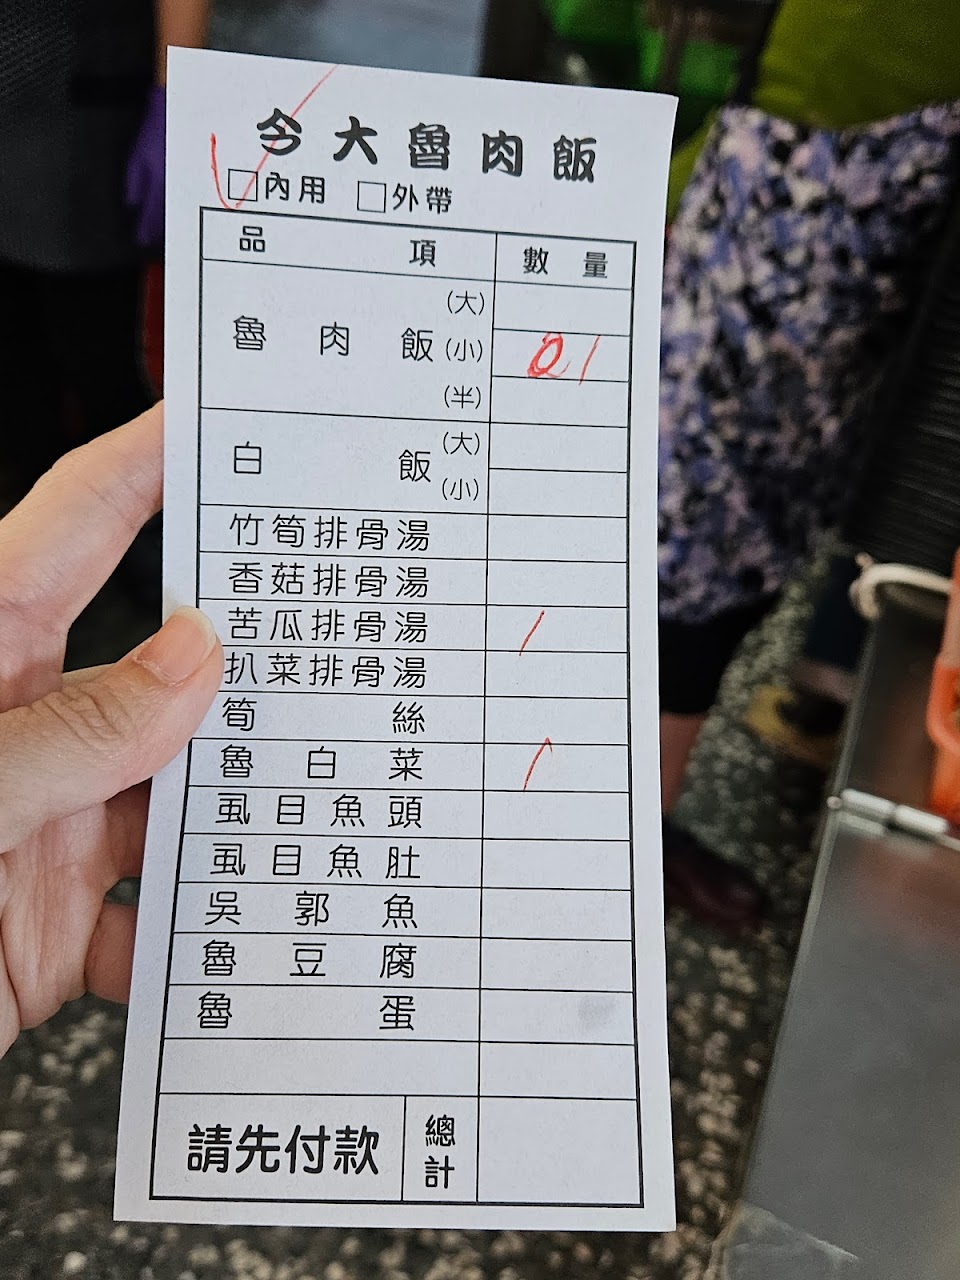 今大魯肉飯
□內用 □外帶
品項 數量
魯肉飯 (大)
(小) 1
(半)
白飯 (大)
(小)
竹筍排骨湯
香菇排骨湯
苦瓜排骨湯 /
扒菜排骨湯
筍絲
魯白菜 /
虱目魚頭
虱目魚肚
吳郭魚
魯豆腐
魯蛋
請先付款 總計